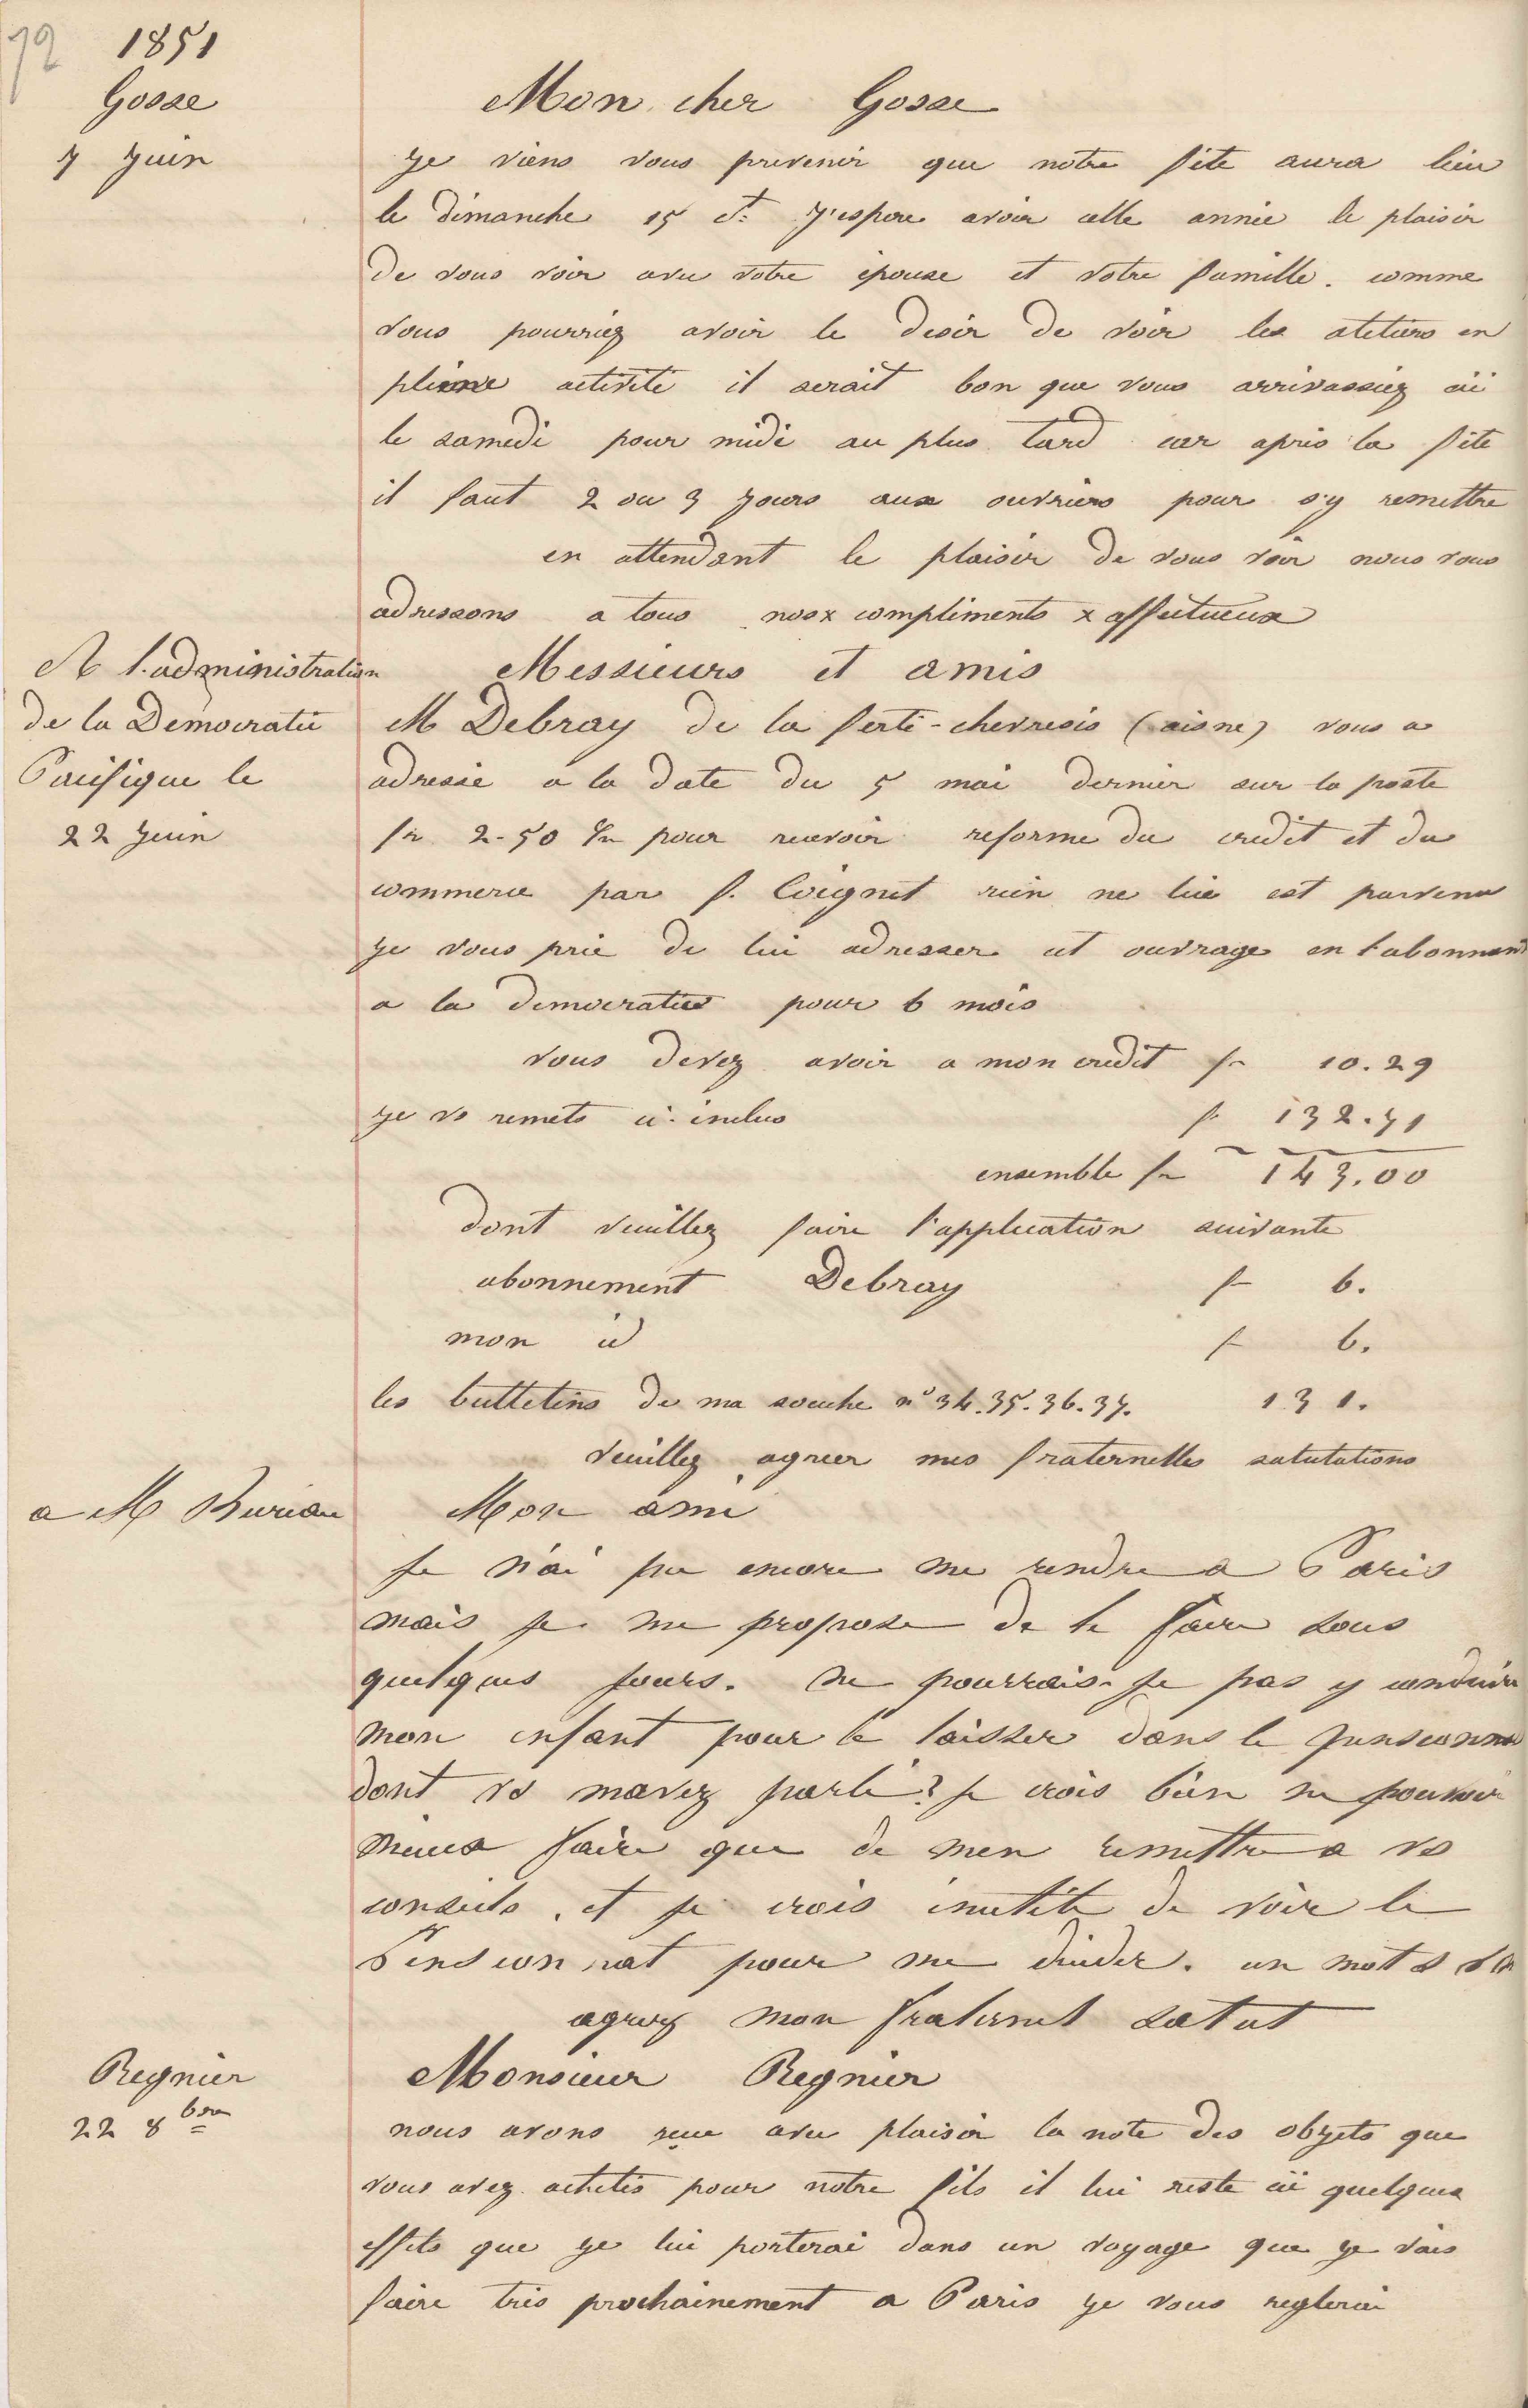 72 1851
Gosse
7 Juin
Mon cher Gosse
Je viens vous prevenir que notre fête aura lieu
le dimanche 15 ct. J'espere avoir cette année le plaisir
de vous voir avec votre épouse et votre famille. comme
vous pourriez avoir le desir de voir les ateliers en
pleine activité il serait bon que vous arrivassiez ici
le samedi pour midi au plus tard car après la fête
il faut 2 ou 3 jours aux ouvriers pour s'y remettre
en attendant le plaisir de vous voir nous vous
adressons a tous nos x compliments x affectueux
A l'administration
de la Democratie
Pacifique le
22 Juin
Messieurs et amis
M Debray de la ferté-chevresis (aisne) vous a
adressé a la date du 5 mai dernier sur la poste
fr 2-50 pour recevoir reforme du credit et du
commerce par f. Coignet rien ne lui est parvenu
je vous prie de lui adresser cet ouvrage en l'abonnant
a la democratie pour 6 mois
vous devez avoir a mon credit fr 10.29
je vs remets ci-inclus f. 132.71
ensemble fr 143.00
dont veuillez faire l'application suivante
abonnement Debray f 6.
mon id f 6.
les bulletins de ma souche n° 34.35.36.37. 131.
veuillez agreer mes fraternelles salutations
a M Burian
Mon ami
Je n'ai pu encore me rendre a Paris
mais je me propose de le faire sous
quelques jours. ne pourrais-je pas y conduire
mon enfant pour le laisser dans le pensionnat
dont vs mavez parlé? je crois bien ne pouvoir
mieux faire que de men remettre a vs
conseils, et je crois inutile de voir le
Pensionnat pour me décider. un mot s
agreez mon fraternel salut
Regnier
22 8bre
Monsieur Regnier
nous avons reçu avec plaisir la note des objets que
vous avez achetés pour notre fils il lui reste ici quelques
effets que je lui porterai dans un voyage que je vais
faire très prochainement a Paris je vous reglerai